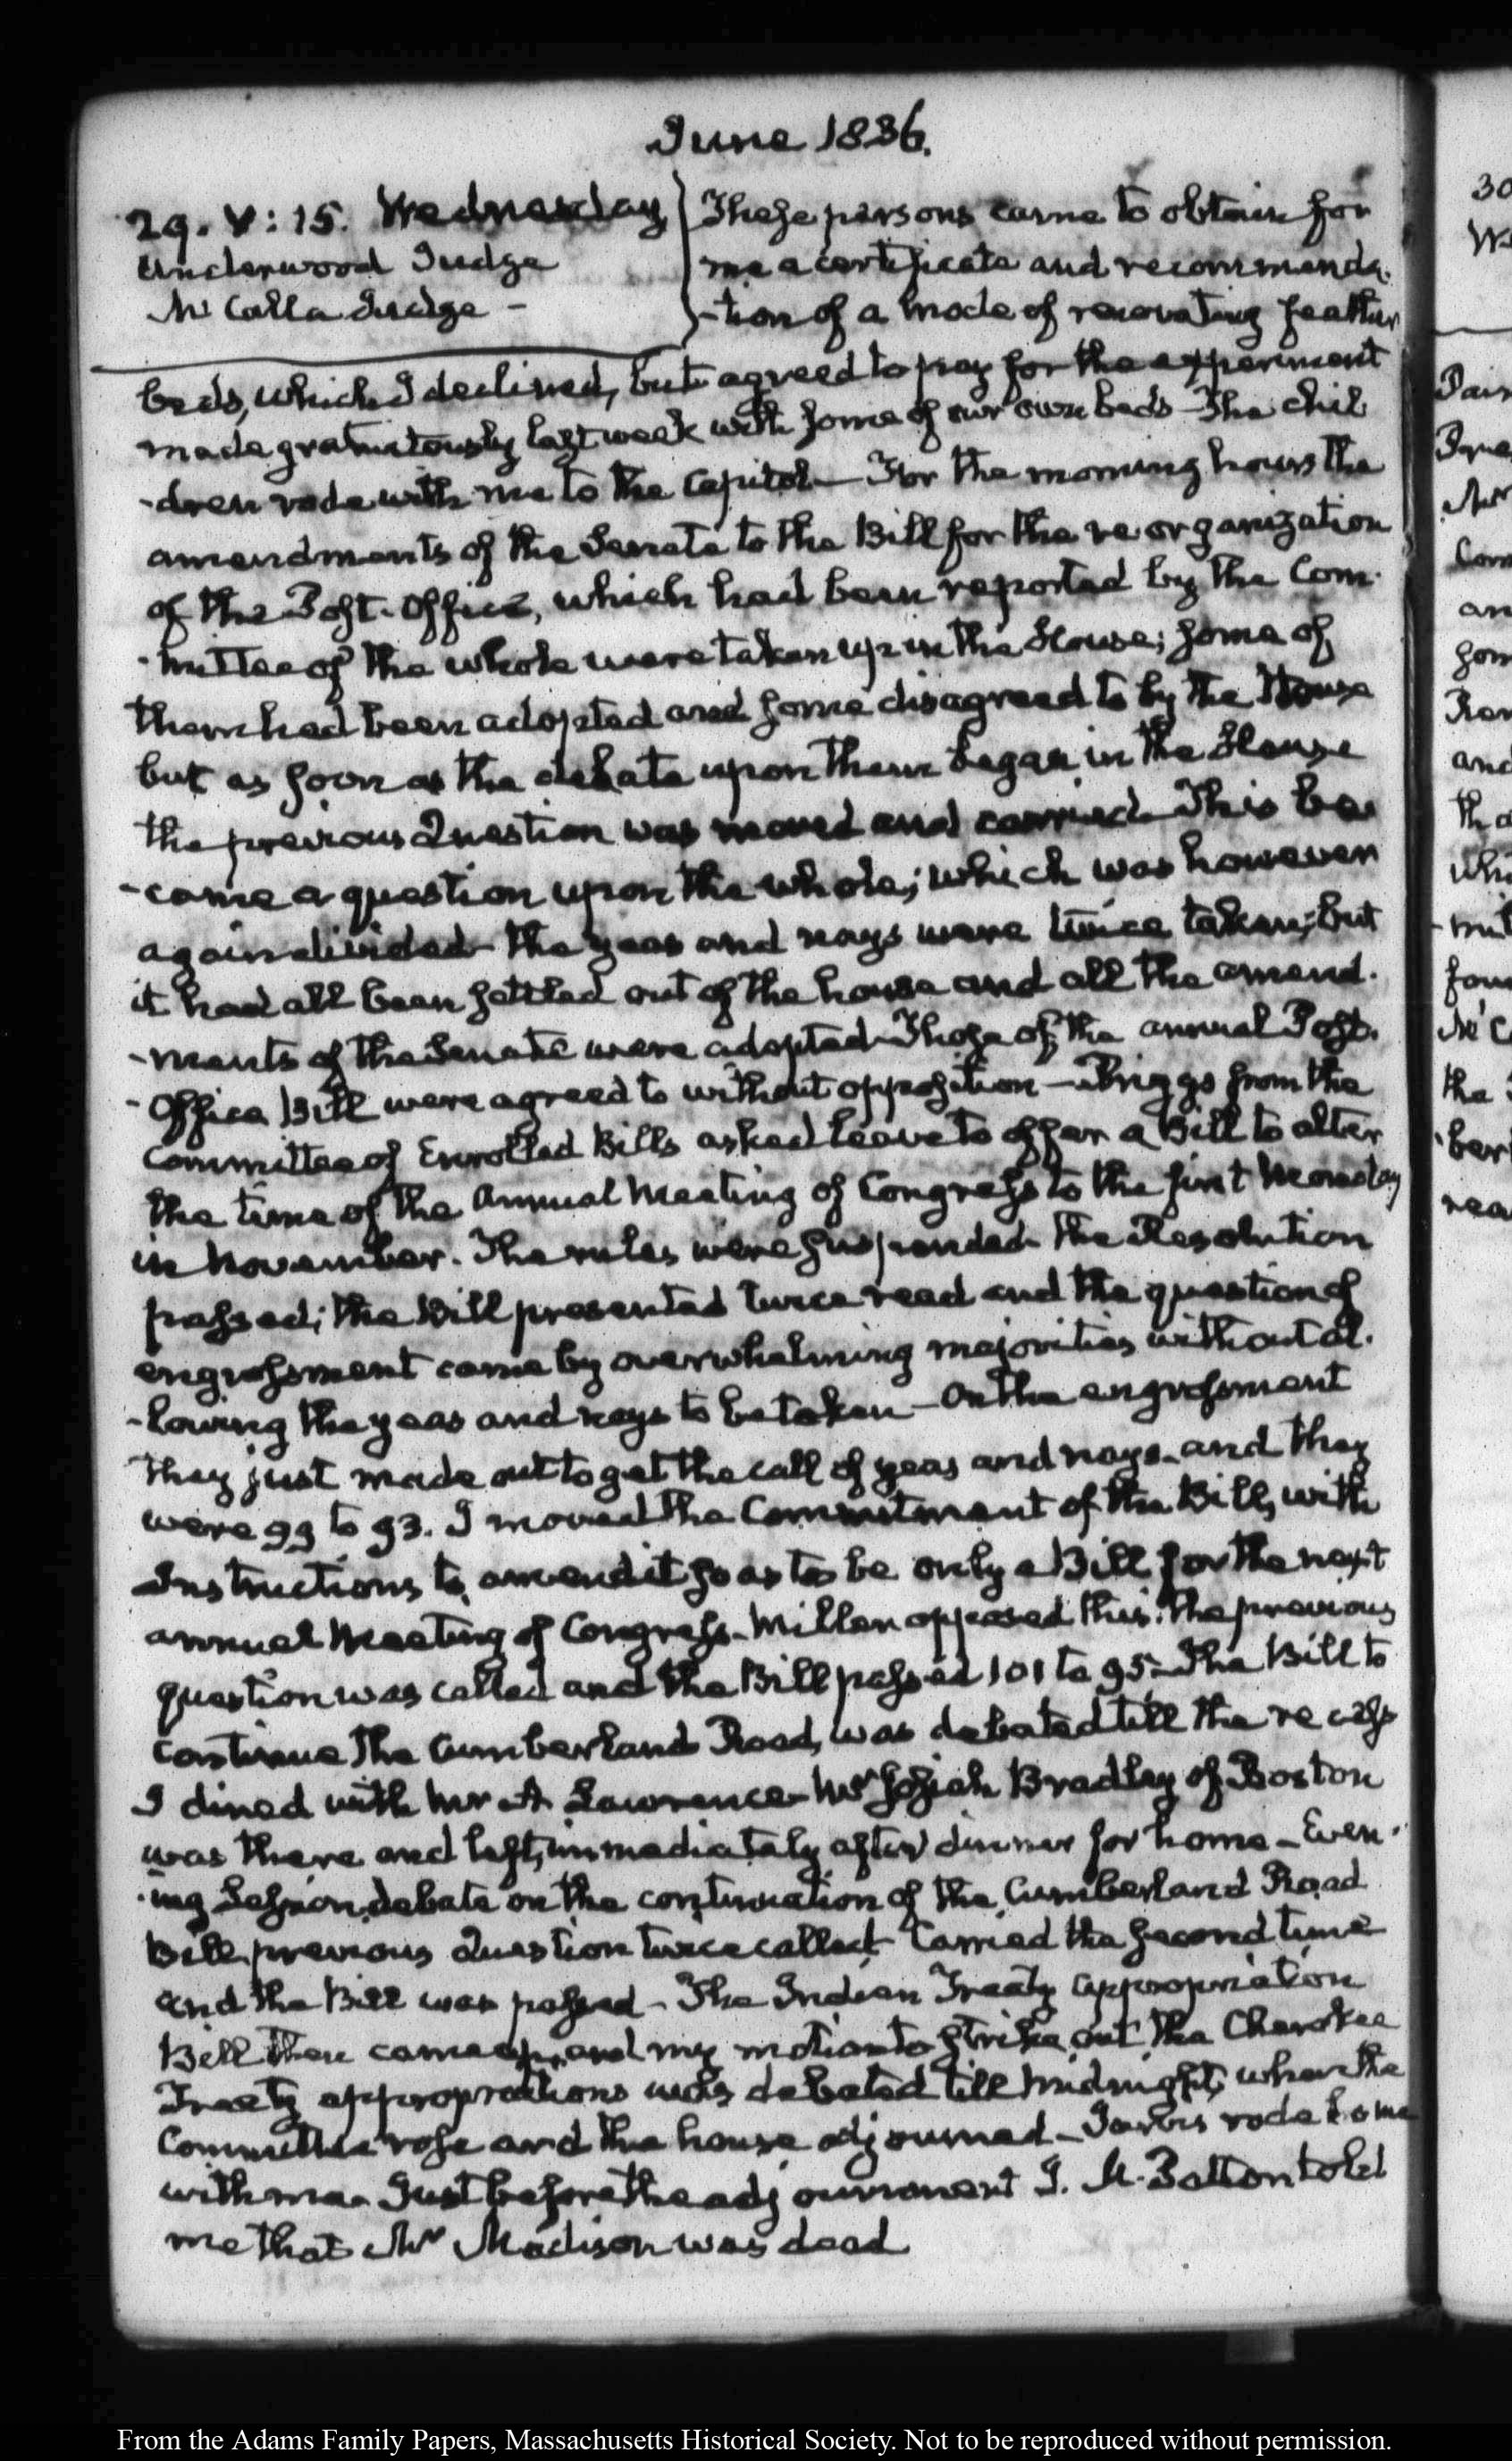 June 1836.
29. V: 15. Wednesday
Underwood Judge
McCalla Judge –
These persons came to obtain for
me a certificate and recommenda-
-tion of a mode of renovating feather
beds, which I declined, but agreed to pay for the experiment
made gratuitously last week with some of our own beds – The chil
-dren rode with me to the Capitol – For the morning hours the
amendments of the Senate to the Bill for the re organization
of the Post-Office, which had been reported by the Com-
-mittee of the whole were taken up in the House; some of
them had been adopted and some disagreed to by the House
but as soon as the debate upon them began in the House
the previous Question was moved and carried – This be-
-came a question upon the whole; which was however
again divided – the yeas and nays were twice taken; but
it had all been settled out of the house and all the amend-
-ments of the Senate were adopted – Those of the annual Post-
-Office Bill were agreed to without opposition – Briggs from the
Committee of Enrolled Bills asked leave to offer a Bill to alter
the time of the Annual Meeting of Congress to the first Monday
in November. The rules were suspended the Resolution
passed; the Bill presented twice read and the question of
engrossment came by overwhelming majorities without al-
-lowing the yeas and nays to be taken – On the engrossment
they just made out to get the call of yeas and nays – and they
were 99 to 93. I moved the Commitment of the Bill, with
Instructions to amend it so as to be only a Bill for the next
annual Meeting of Congress – Miller opposed this. The previous
question was called and the Bill passed 101 to 95 – The Bill to
continue the Cumberland Road, was debated till the recess
I dined with Mr A Lawrence – Mr Josiah Bradley of Boston
was there and left, immediately after dinner for home – Even-
-ing Session, debate on the continuation of the Cumberland Road
Bill, previous Question twice called – Carried the second time
and the Bill was passed – The Indian Treaty appropriation
Bill then came up, and my motion to strike out the Cherokee
Treaty appropriations was debated till midnight, when the
Committee rose and the house adjourned – Jarvis rode home
with me – Just before the adjournment J. M. Patton told
me that Mr Madison was dead